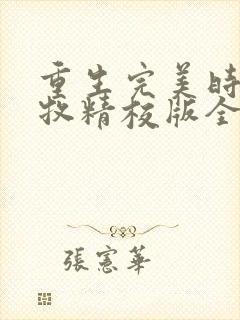 重生完美時
牧精校版全
張憲華